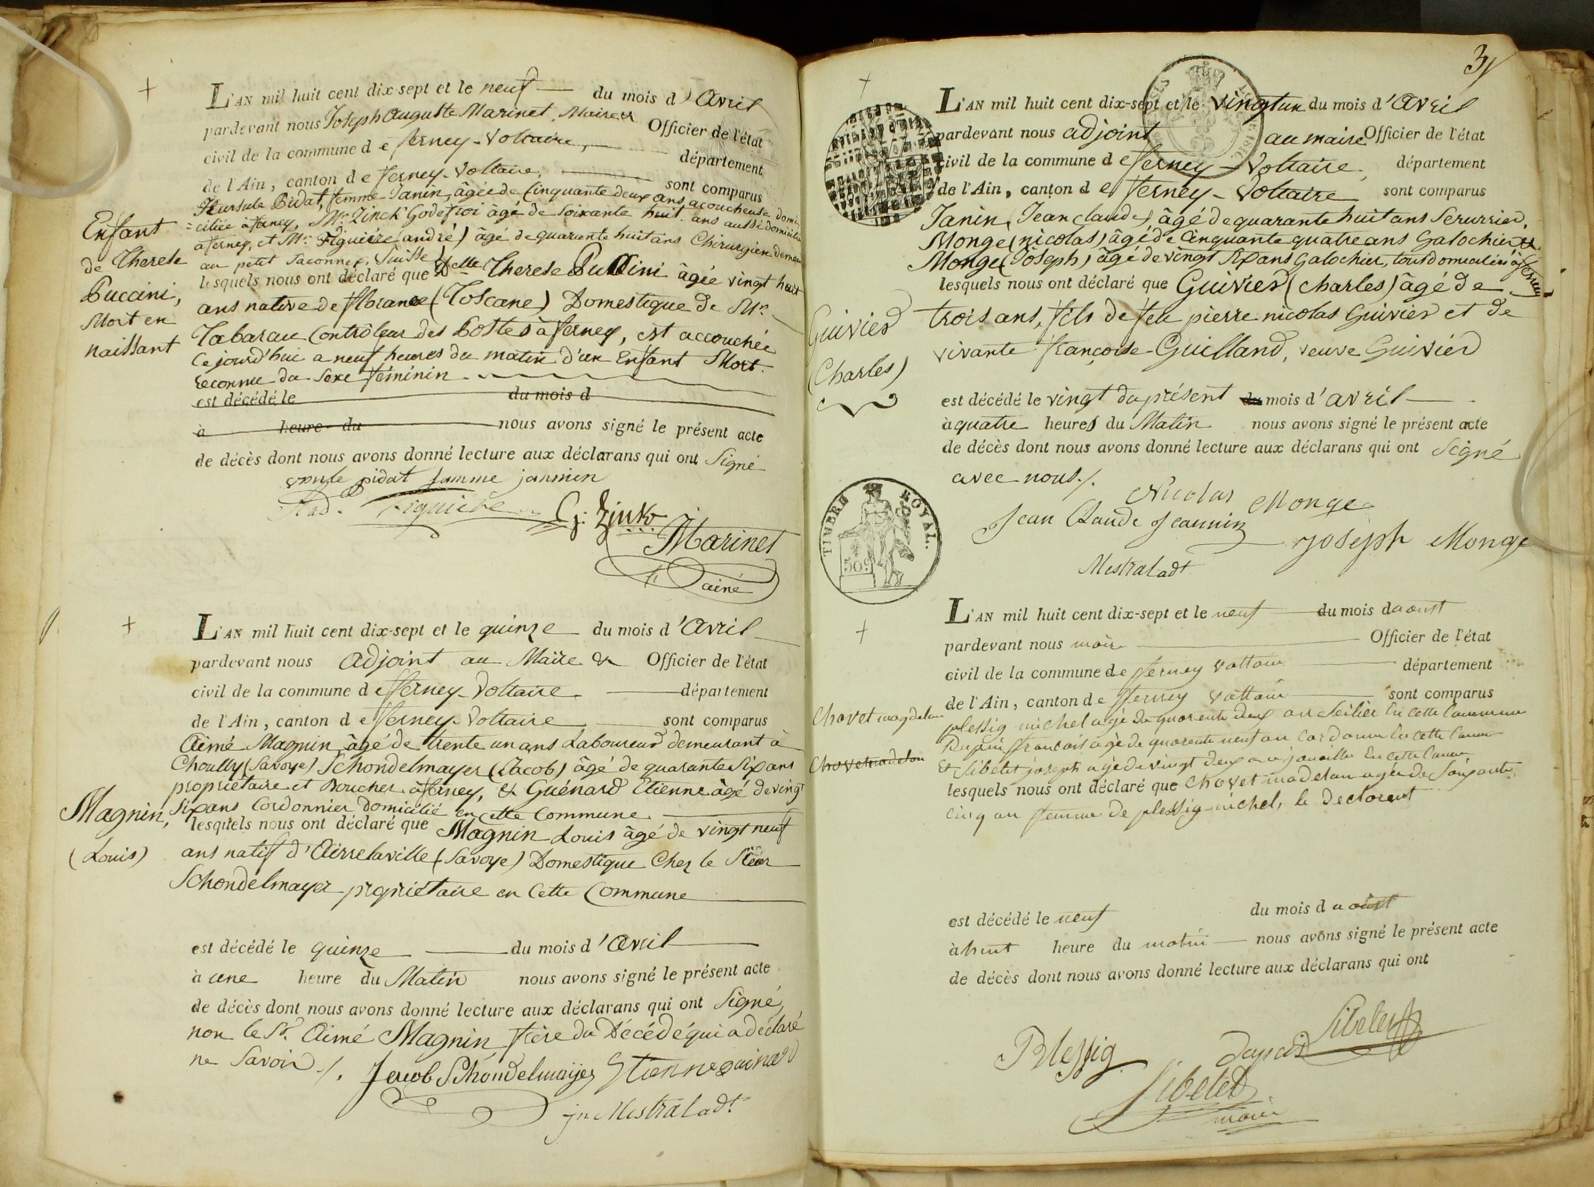 +
L'AN mil huit cent dix sept et le neuf du mois d'Avril
pardevant nous Joseph Auguste Marinet, Maire & Officier de l'état
civil de la commune de ferney-Voltaire, département
de l'Ain, canton de ferney-Voltaire, sont comparus
Hursule Pidat, femme Janin, âgée de Cinquante deux ans, acoucheuse domi
=ciliée à ferney, Mr. Zinck Godefroi âgé de Soixante huit ans aussi domicilié
à ferney, et Mr. Figuière (andré) âgé de quarante huit ans Chirurgien demeu
au petit Saconnex, Suisse
lesquels nous ont déclaré que Delle Therese Puccini âgée vingt huit
ans native de florance (Toscane) Domestique de Mr.
Tabarau Controleur des Postes à ferney, est accouchée
Ce jourd'hui a neuf heures du matin d'un Enfant Mort
reconnu du Sexe féminin
Enfant
de Therese
Puccini,
Mort en
naissant
est décédé le du mois d
à heure du nous avons signé le présent acte
de décès dont nous avons donné lecture aux déclarans qui ont Signé
ursule pidat famme jannin
And. Figuière G: Zink
JMarinet
ainé
+
L'AN mil huit cent dix-sept et le quinze du mois d'Avril
pardevant nous Adjoint au Maire & Officier de l'état
civil de la commune de ferney Voltaire département
de l'Ain, canton de ferney-Voltaire sont comparus
Aimé Magnin, âgé de trente un ans Laboureur demeurant à
Choully (Savoye) Schondelmayer (Jacob) âgé de quarante Six ans
propriétaire et Boucher à ferney, & Guénard Etienne âgé de vingt
Six ans Cordonnier domicilié en cette Commune
lesquels nous ont déclaré que Magnin Louis âgé de vingt neuf
ans natif d'Airrelaville (Savoye) Domestique Chez le Sieur
Schondelmayer propriétaire en Cette Commune
Magnin,
(Louis)
est décédé le quinze du mois d'Avril
à une heure du Matin nous avons signé le présent acte
de décès dont nous avons donné lecture aux déclarans qui ont Signé,
non le Sr. Aimé Magnin frère du Décédé qui a déclaré
ne Savoir ./.
Jacob Schondelmayer Etienne guinard
jn Mestral adt
31
+
L'AN mil huit cent dix-sept et le vingt un du mois d'Avril
pardevant nous adjoint au maire Officier de l'état
civil de la commune de ferney-Voltaire, département
de l'Ain, canton de ferney-Voltaire sont comparus
Janin (Jean claude) âgé de quarante huit ans Serurrier,
Monge (nicolas) âgé de Cinquante quatre ans Galochier &
Monge (Joseph) âgé de vingt Six ans Galochier, tous domiciliés à ferney
lesquels nous ont déclaré que Guivier (Charles) âgé de
trois ans, fils de feu pierre nicolas Guivier et de
vivante françoise Guilland, veuve Guivier
Guivier
(Charles)
est décédé le vingt du présent du mois d'avril
à quatre heures du Matin nous avons signé le présent acte
de décès dont nous avons donné lecture aux déclarans qui ont Signé
avec nous ./.
Nicolas Monge
Jean Claude Jeannin
Joseph Monge
Mestral adt
TIMBRE ROYAL.
+
L'AN mil huit cent dix-sept et le neuf du mois d'aoust
pardevant nous maire Officier de l'état
civil de la commune de ferney Voltair département
de l'Ain, canton de ferney Voltair sont comparus
plessig michel agé de quarente deux an Sellier En cette Commune
Dupui francois agé de quarente neuf an Cordonnier En cette Commune
Et Sibelet joseph agé de vingt deux an En cette Comune
lesquels nous ont déclaré que Chovet madelon agée de Soixante
Cinq an femme de plessig michel, le declarent
Chovet magdelon
Chovet madelon
est décédé le neuf du mois d'aoust
à huit heure du matin nous avons signé le présent acte
de décès dont nous avons donné lecture aux déclarans qui ont
Blessig Dupui Sibelet
Sibelet
maire